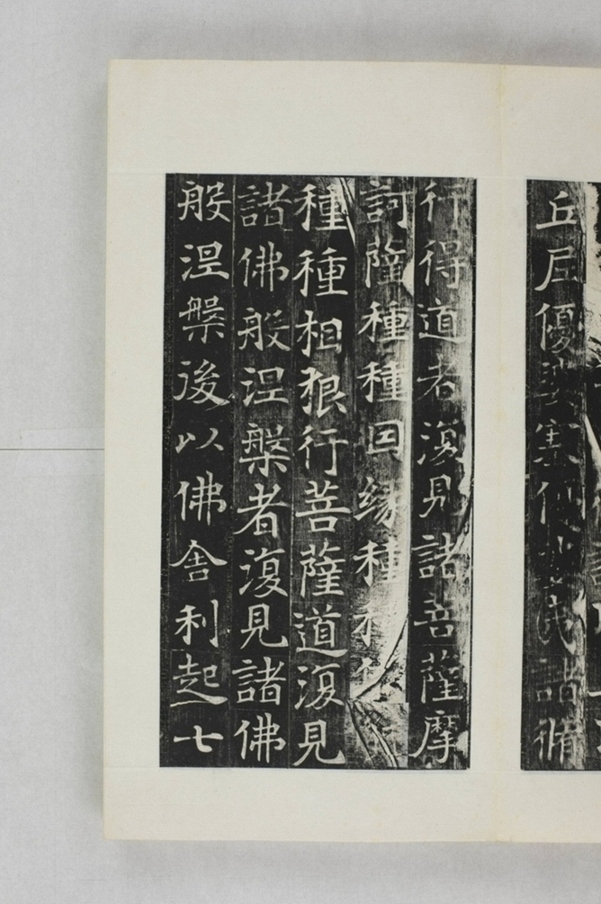 丘尼優婆塞優婆夷諸脩
行得道者復見諸菩薩摩
訶薩種種因緣種種信
種種相貌行菩薩道復見
諸佛般涅槃者復見諸佛
般涅槃後以佛舍利起七